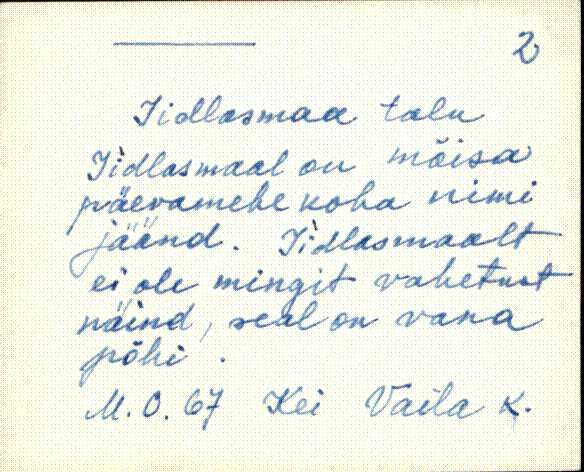 2
Iidlasmaa talu
Iìdlasmaal on mõisa
päevamehe koha nimi
jäänd. Iìdlasmaalt
ei ole mingit vahetust
näind, seal on vana
põhi.
M. O. 67 Kei Vaila k.